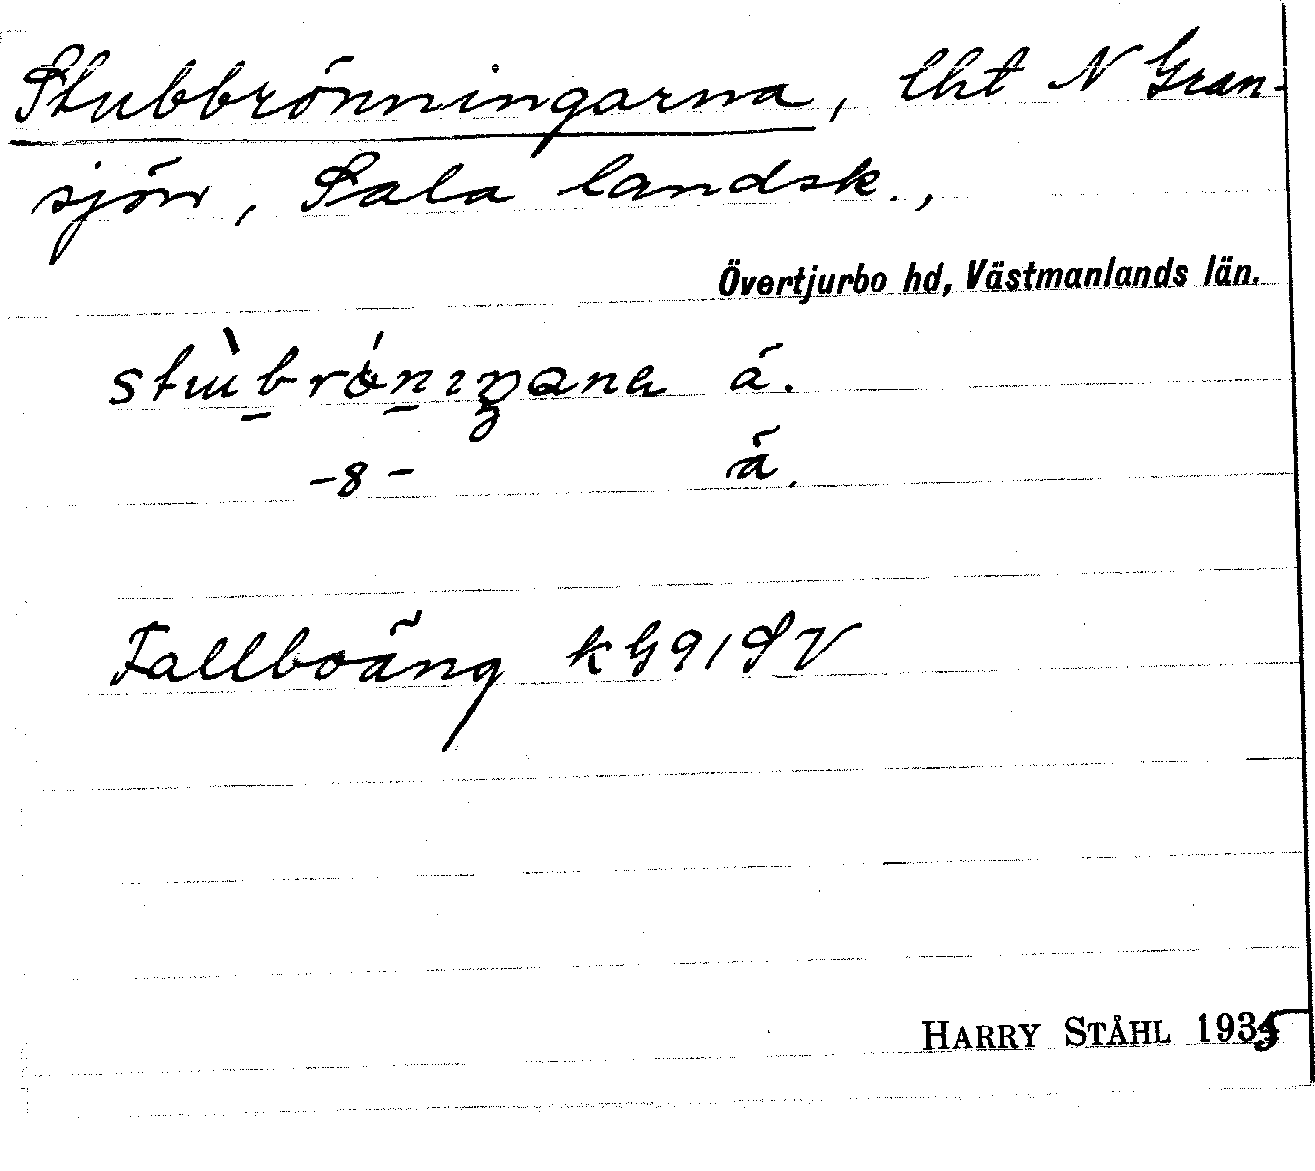 Stubbrönningarna, lht N Gran-
sjön, Sala landsk.,
Övertjurbo hd, Västmanlands län.
ä.
-8- ä.
Fallboäng kG91SV
HARRY STÅHL 1935